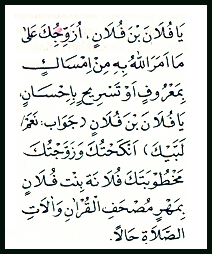 يَا فُلَانَ بْنَ فُلَانٍ، اُزَوِّجُكَ عَلَى
مَا اَمَرَ اللهُ بِهِ مِنْ اِمْسَاكٍ
بِمَعْرُوْفٍ اَوْ تَسْرِيْحٍ بِاِحْسَانٍ
يَا فُلَانَ بْنَ فُلَانٍ (جَوَاب، نَعَمْ
لَبَّيْكَ) اَنْكَحْتُكَ وَزَوَّجْتُكَ
مَخْطُوْبَتَكَ فُلَانَة بِنْت فُلَانٍ
بِمَهْرٍ مُصْحَفِ الْقُرْآنِ وَآلَاتِ
الصَّلَاةِ حَالًا.